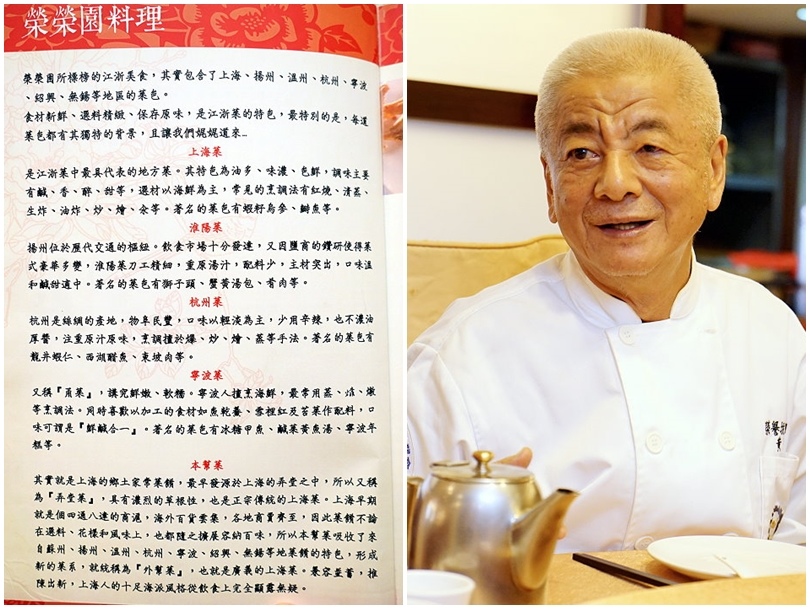 榮榮園料理
榮榮園所標榜的江浙美食，其實包含了上海、揚州、溫州、杭州、寧波
、紹興、無錫等地區的菜色。
食材新鮮、選料精緻、保存原味，是江浙菜的特色，最特別的是，每道
菜色都有其獨特的背景，且讓我們娓娓道來…
上海菜
是江浙菜中最具代表的地方菜。其特色為油多、味濃、色鮮，調味主要
有鹹、香、醉、甜等，選材以海鮮為主，常見的烹調法有紅燒、清蒸、
生炸、油炸、炒、燴、汆等。著名的菜色有蝦籽烏參、鱔魚等。
淮陽菜
揚州位於歷代交通的樞紐。飲食市場十分發達，又因鹽商的鑽研使得菜
式豪華多變，淮陽菜刀工精細，重原湯汁，配料少，主材突出，口味溫
和鹹甜適中。著名的菜色有獅子頭、蟹黃湯包、肴肉等。
杭州菜
杭州是絲綢的產地，物阜民豐，口味以輕淡為主，少用辛辣，也不濃油
厚醬，注重原汁原味，烹調擅於爆、炒、燴、蒸等手法。著名的菜色有
龍井蝦仁、西湖醋魚、東坡肉等。
寧波菜
又稱『甬菜』，講究鮮嫩、軟糯。寧波人擅烹海鮮，最常用蒸、焅、燉
等烹調法。同時喜歡以加工的食材如魚乾鯗、雪裡紅及苔菜作配料，口
味可謂是『鮮鹹合一』。著名的菜色有冰糖甲魚、鹹菜黃魚湯、寧波年
糕等。
本幫菜
其實就是上海的鄉土家常菜餚，最早發源於上海的弄堂之中，所以又稱
為『弄堂菜』，具有濃烈的草根性，也是正宗傳統的上海菜。上海早期
就是個四通八達的商滬，海外百貨雲集，各地商賈齊至，因此菜餚不論
在選料、花樣和風味上，也都隨之擴展容納百味，所以本幫菜吸收了來
自蘇州、揚州、溫州、杭州、寧波、紹興、無錫等地菜餚的特色，形成
新的菜系，就統稱為『外幫菜』，也就是廣義的上海菜。兼容並蓄，推
陳出新，上海人的十足海派風格從飲食上完全顯露無疑。